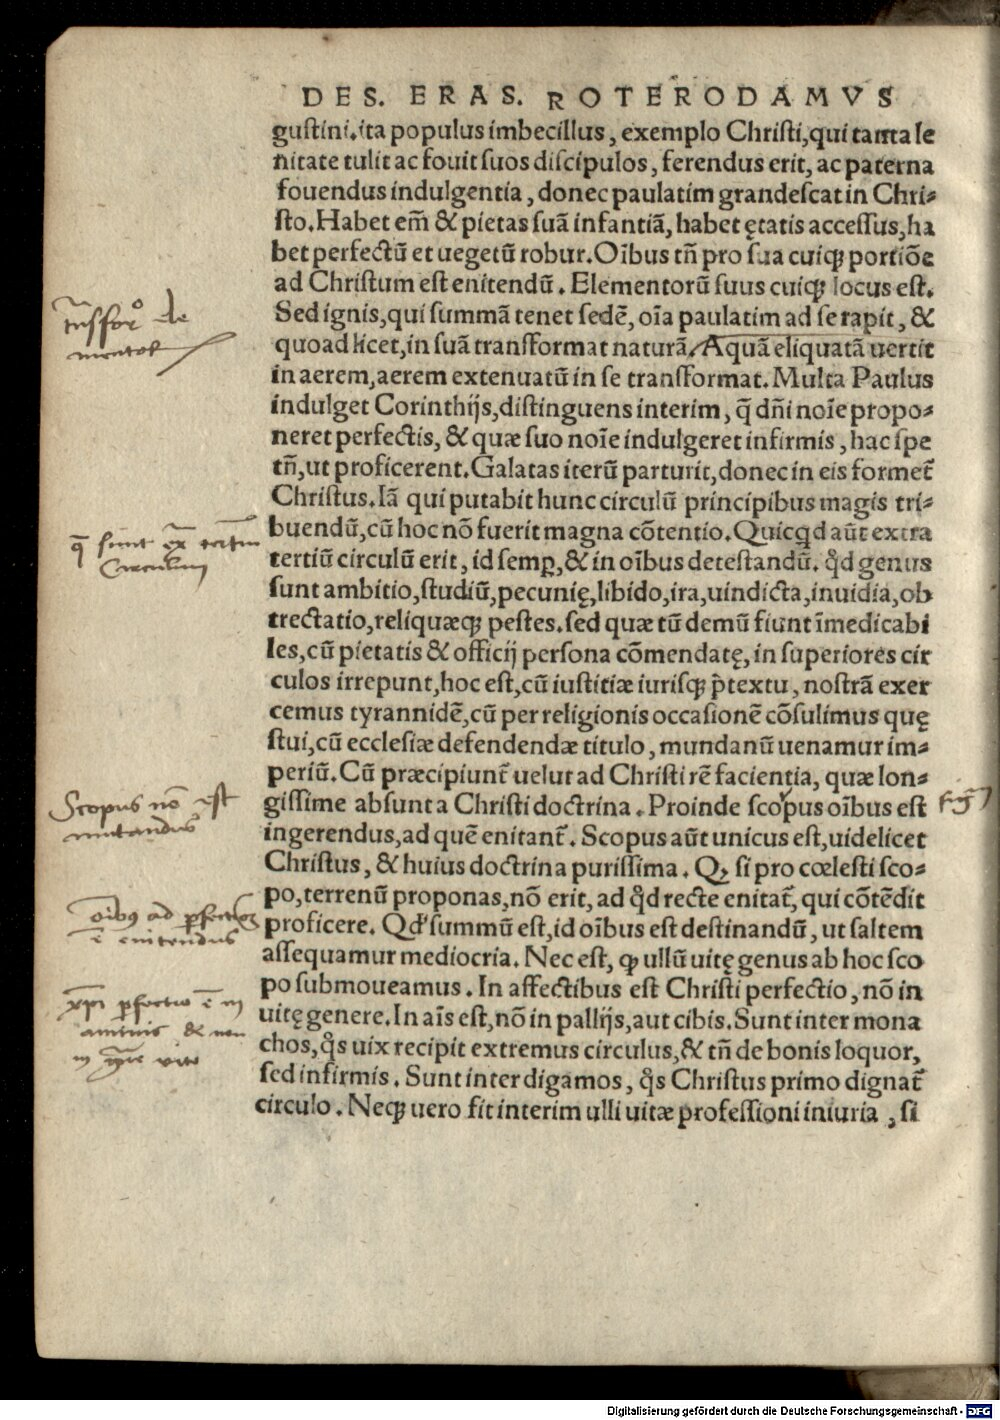 DES. ERAS. ROTERODAMVS
gustini.ita populus imbecillus, exemplo Christi,qui tanta le
nitate tulit ac fouit suos discipulos, ferendus erit, ac paterna
fouendus indulgentia, donec paulatim grandescat in Chri-
sto.Habet em̃ & pietas suã infantiã, habet ętatis accessus,ha
bet perfectũ et uegetũ robur.Oĩbus tñ pro sua cuiqꝫ portiõe
ad Christum est enitendũ. Elementorũ suus cuiqꝫ locus est.
Sed ignis,qui summã tenet sedẽ, oĩa paulatim ad se rapit, &
quoad licet,in suã transformat naturã. Aquã eliquatã uertit
in aerem,aerem extenuatũ in se transformat. Multa Paulus
indulget Corinthijs,distinguens interim, q̃ dñi noĩe propo-
neret perfectis, & quæ suo noĩe indulgeret infirmis, hac spe
tñ,ut proficerent. Galatas iterũ parturit,donec in eis formet̃
Christus. Iã qui putabit hunc circulũ principibus magis tri-
buendũ,cũ hoc nõ fuerit magna cõtentio. Quicqd aũt extra
tertiũ circulũ erit, id semꝑ,& in oĩbus detestandũ. qd̃ genus
sunt ambitio,studiũ,pecunię,libido,ira,uindicta,inuidia,ob
trectatio,reliquæqꝫ pestes.sed quæ tũ demũ fiunt ĩmedicabi
les,cũ pietatis & officij persona cõmendatę, in superiores cir
culos irrepunt,hoc est,cũ iustitiæ iurisqꝫ p̃textu, nostrã exer
cemus tyrannidẽ,cũ per religionis occasionẽ cõsulimus quę
stui,cũ ecclesiæ defendendæ titulo, mundanũ uenamur im-
periũ. Cũ præcipiunt̃ uelut ad Christi rẽ facientia, quæ lon-
gissime absunt a Christi doctrina. Proinde scopus oĩbus est
ingerendus,ad quẽ enitant̃. Scopus aũt unicus est,uidelicet
Christus, & huius doctrina purissima. Qꝫ si pro cœlesti sco-
po,terrenũ proponas,nõ erit, ad qd̃ recte enitat̃, qui cõtẽdit
proficere. Qd̃ summũ est,id oĩbus est destinandũ, ut saltem
assequamur mediocria. Nec est, ꝙ ullũ uitę genus ab hoc sco
po submoueamus. In affectibus est Christi perfectio, nõ in
uitę genere. In aĩs est,nõ in pallijs,aut cibis. Sunt inter mona
chos,q̃s uix recipit extremus circulus,& tñ de bonis loquor,
sed infirmis. Sunt inter digamos, q̃s Christus primo dignat̃
circulo. Neqꝫ uero fit interim ulli uitæ professioni iniuria, si
q̃ sunt ex̃ tertiu
Circulum
Scopus nõ est
mutandus
oĩbus ad perfectione
ẽ enitendus
xp̃i perfectio ẽ in
animis & non
in gñe vite
Digitalisierung gefördert durch die Deutsche Forschungsgemeinschaft - DFG